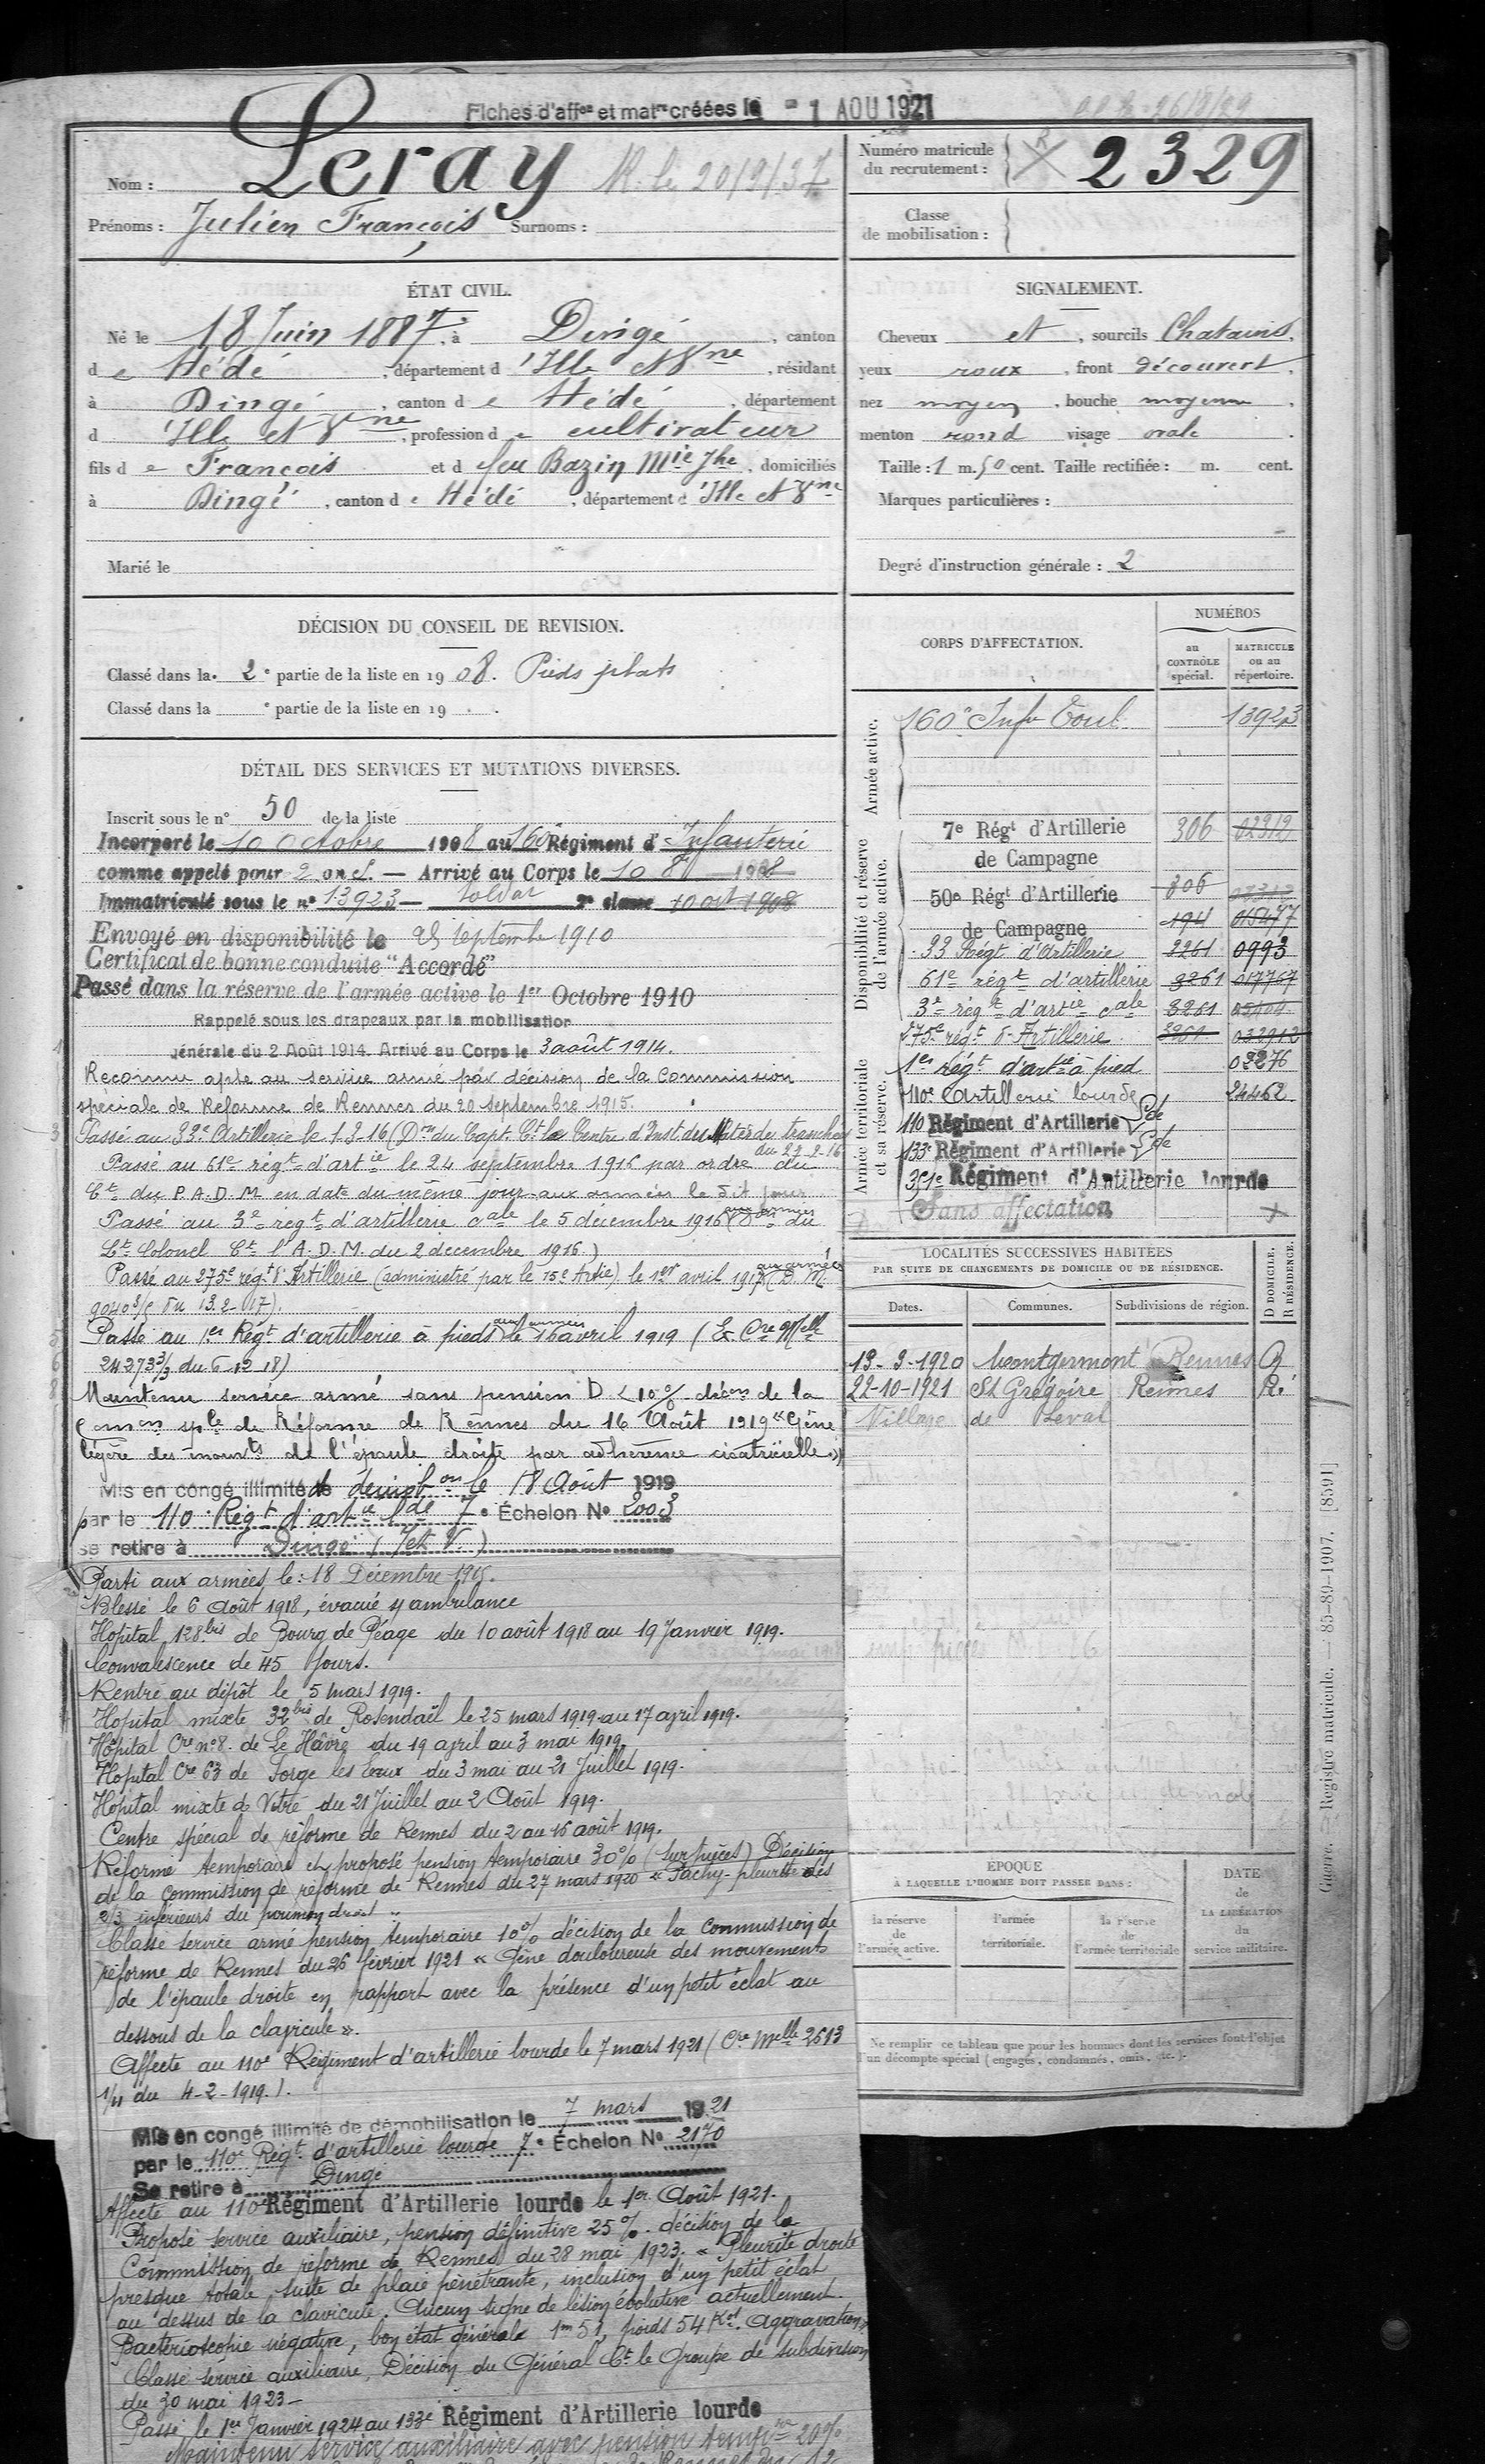 Fiches d'aff<sup>on</sup> et mat<sup>re</sup> créées le - 1 AOU 1921
Nom : Leray R. le 20/9/37
Prénoms : Julien François Surnoms :
Numéro matricule du recrutement : 2329
Classe de mobilisation :
ÉTAT CIVIL.
Né le 18 Juin 1887, à Dingé, canton
de Hédé, département d'Ille et Vne, résidant
à Dingé, canton de Hédé, département
d Ille et Vne, profession de cultivateur
fils de François et d feu Bazin Mie Jhe, domiciliés
à Dingé, canton de Hédé, département d Ille et Vne
Marié le
SIGNALEMENT.
Cheveux et, sourcils Chatains,
yeux roux, front découvert,
nez moyen, bouche moyenne,
menton rond visage ovale.
Taille : 1 m. 50 cent. Taille rectifiée : m. cent.
Marques particulières :
Degré d'instruction générale : 2
DÉCISION DU CONSEIL DE REVISION.
Classé dans la 2e partie de la liste en 1908. Pieds plats
Classé dans la e partie de la liste en 19 .
DÉTAIL DES SERVICES ET MUTATIONS DIVERSES.
Inscrit sous le n° 50 de la liste
Incorporé le 10 Octobre 1908 au 160e Régiment d'Infanterie
comme appelé pour 2 ans. — Arrivé au Corps le 10 8bre 1908
Immatriculé sous le n° 13923 — soldat 2e classe 10 oct 1908
Envoyé en disponibilité le 25 Septembre 1910
Certificat de bonne conduite "Accordé"
Passé dans la réserve de l'armée active le 1er Octobre 1910
Rappelé sous les drapeaux par la mobilisation
générale du 2 Août 1914. Arrivé au Corps le 3 août 1914.
Reconnu apte au service armé par décision de la Commission
spéciale de Réforme de Rennes du 20 septembre 1915.
Passé au 33e Artillerie le 1-3-16 (Don du Capt. Ct le Centre d'Inst des Mater de tranchée
du 27-2-16
Passé au 61e régt d'artie le 24 septembre 1916 par ordre du
Ct du P.A.D.M en date du même jour aux armées le dit jour
Passé au 3e régt d'artillerie cale le 5 décembre 1916 aux armées (Don du
Lt Colonel Ct l'A.D.M. du 2 décembre 1916.)
Passé au 275e régt d'Artillerie (administré par le 15e Artie) le 1er avril 1917 aux armées (D. M.
9040 3/c du 13-2-17).
Passé au 1er Régt d'artillerie à pieds aux armées le 16 avril 1919 (Ex. Cre Melle
24273 3/3 du 6-12-18)
Maintenu service armé sans pension D < 10% décon de la
Comon sple de Réforme de Rennes du 16 Août 1919 "Gêne
légère des mouvts de l'épaule droite par adhérence cicatricielle"
Mis en congé illimité de démobon le 18 Août 1919
par le 110 Régt d'artie lde 7e Échelon No 2003
se retire à Dingé (I et V.)
Parti aux armées le : 18 Décembre 1915.
Blessé le 6 Août 1918, évacué s/ ambulance
Hopital 128bis de Bourg de Péage du 10 août 1918 au 19 Janvier 1919.
Convalescence de 45 Jours.
Rentré au dépôt le 5 mars 1919.
Hopital mixte 32bis de Rosendaël le 25 mars 1919 au 17 avril 1919.
Hôpital Cre n° 8. de Le Hâvre du 19 avril au 3 mai 1919.
Hopital Cre 63 de Forge les Eaux du 3 mai au 21 Juillet 1919.
Hopital mixte de Vitré du 21 Juillet au 2 Août 1919.
Centre spécial de réforme de Rennes du 2 au 16 août 1919.
Réformé temporaire et proposé pension temporaire 30% (sur pièces) Décision
de la Commission de réforme de Rennes du 27 mars 1920 "Pachy-pleurite des
2/3 inférieurs du poumon droit"
Classé service armé pension temporaire 10% décision de la Commission de
réforme de Rennes du 26 février 1921 "Gêne douloureuse des mouvements
de l'épaule droite en rapport avec la présence d'un petit éclat au
dessous de la clavicule".
Affecté au 110e Régiment d'artillerie lourde le 7 mars 1921 (Cre Melle 2513
1/11 du 4-2-1919.).
Mis en congé illimité de démobilisation le 7 mars 1921
par le 110e Régt d'artillerie lourde 7e Échelon No 2170
Se retire à Dingé
Affecté au 110e Régiment d'Artillerie lourde le 1er Août 1921.
Proposé service auxiliaire, pension définitive 25%. décision de la
Commission de réforme de Rennes du 28 mai 1923. "Pleurite droite
presque totale, suite de plaie pénétrante, inclusion d'un petit éclat
au dessus de la clavicule. Aucun signe de lésion évolutive actuellement.
Bactérioscopie négative, bon état générale 1m51, poids 54 Kos. Aggravation"
Classé service auxiliaire, Décision du Général Ct le Groupe de subdivision
du 30 mai 1923 —
Passé le 1er Janvier 1924 au 133e Régiment d'Artillerie lourde
Maintenu service auxiliaire avec pension tempre 20%
CORPS D'AFFECTATION.
NUMÉROS
au CONTRÔLE spécial.
MATRICULE ou au répertoire.
Armée active.
160e Infie Toul 13923
Disponibilité et réserve de l'armée active.
7e Régt d'Artillerie 306 02312
de Campagne
50e Régt d'Artillerie 306
de Campagne 194 015477
33 Régt d'Artillerie 2261 0993
61e régt d'artillerie 3261 017767
3e régt d'artie cale 3261
275e régt d'Artillerie 032912
Armée territoriale et sa réserve.
1er régt d'artie à pied 02276
110e Artillerie lourde 24462
110 Régiment d'Artillerie Lde
133e Régiment d'Artillerie Lde
351e Régiment d'Artillerie lourde
Sans affectation
LOCALITÉS SUCCESSIVES HABITÉES
PAR SUITE DE CHANGEMENTS DE DOMICILE OU DE RÉSIDENCE.
D DOMICILE. R RÉSIDENCE.
Dates. Communes. Subdivisions de région.
13-3-1920 Montgermont Rennes R
22-10-1921 St Grégoire Rennes Ré
Village de
ÉPOQUE
À LAQUELLE L'HOMME DOIT PASSER DANS :
la réserve de l'armée active.
l'armée territoriale.
la réserve de l'armée territoriale
DATE de LA LIBÉRATION du service militaire.
Ne remplir ce tableau que pour les hommes dont les services font l'objet
d'un décompte spécial (engagés, condamnés, omis, etc.).
Guerre. Registre matricule. — 85-89-1907. [8591]